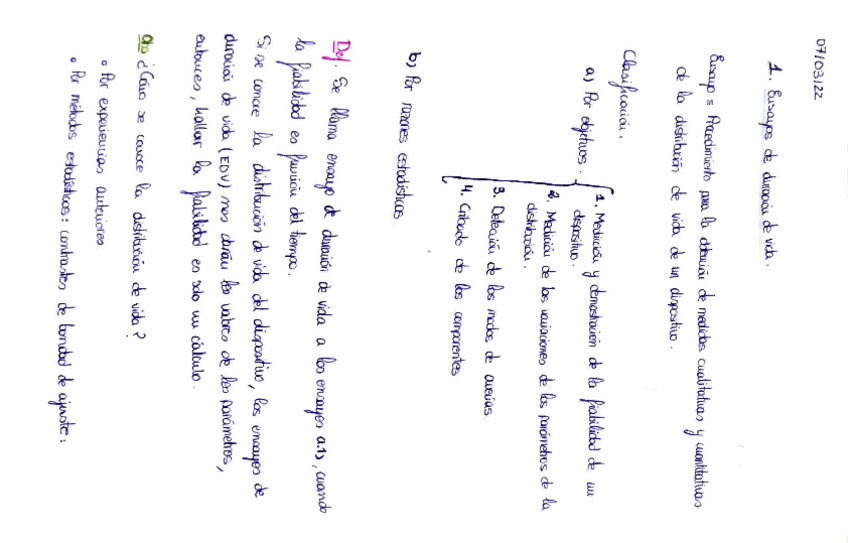 07/03/22
1. Ensayos de duración de vida.
Ensayo ≡ Procedimiento para la obtención de medidas cualitativas y cuantitativas
de la distribución de vida de un dispositivo.
Clasificación.
a) Por objetivos.
1. Medición y demostración de la fiabilidad de un
dispositivo.
2. Medición de las variaciones de los parámetros de la
distribución.
3. Detección de los modos de averías
4. Cribado de los componentes
b) Por razones estadísticas
Def. Se llama ensayo de duración de vida a los ensayos a.1), cuando
la fiabilidad es función del tiempo.
Si se conoce la distribución de vida del dispositivo, los ensayos de
duración de vida (EDV) nos darán los valores de los parámetros,
entonces, hallar la fiabilidad es solo un cálculo.
¿Cómo se conoce la distribución de vida?
• Por experiencias anteriores
• Por métodos estadísticos: contrastes de bondad de ajuste: